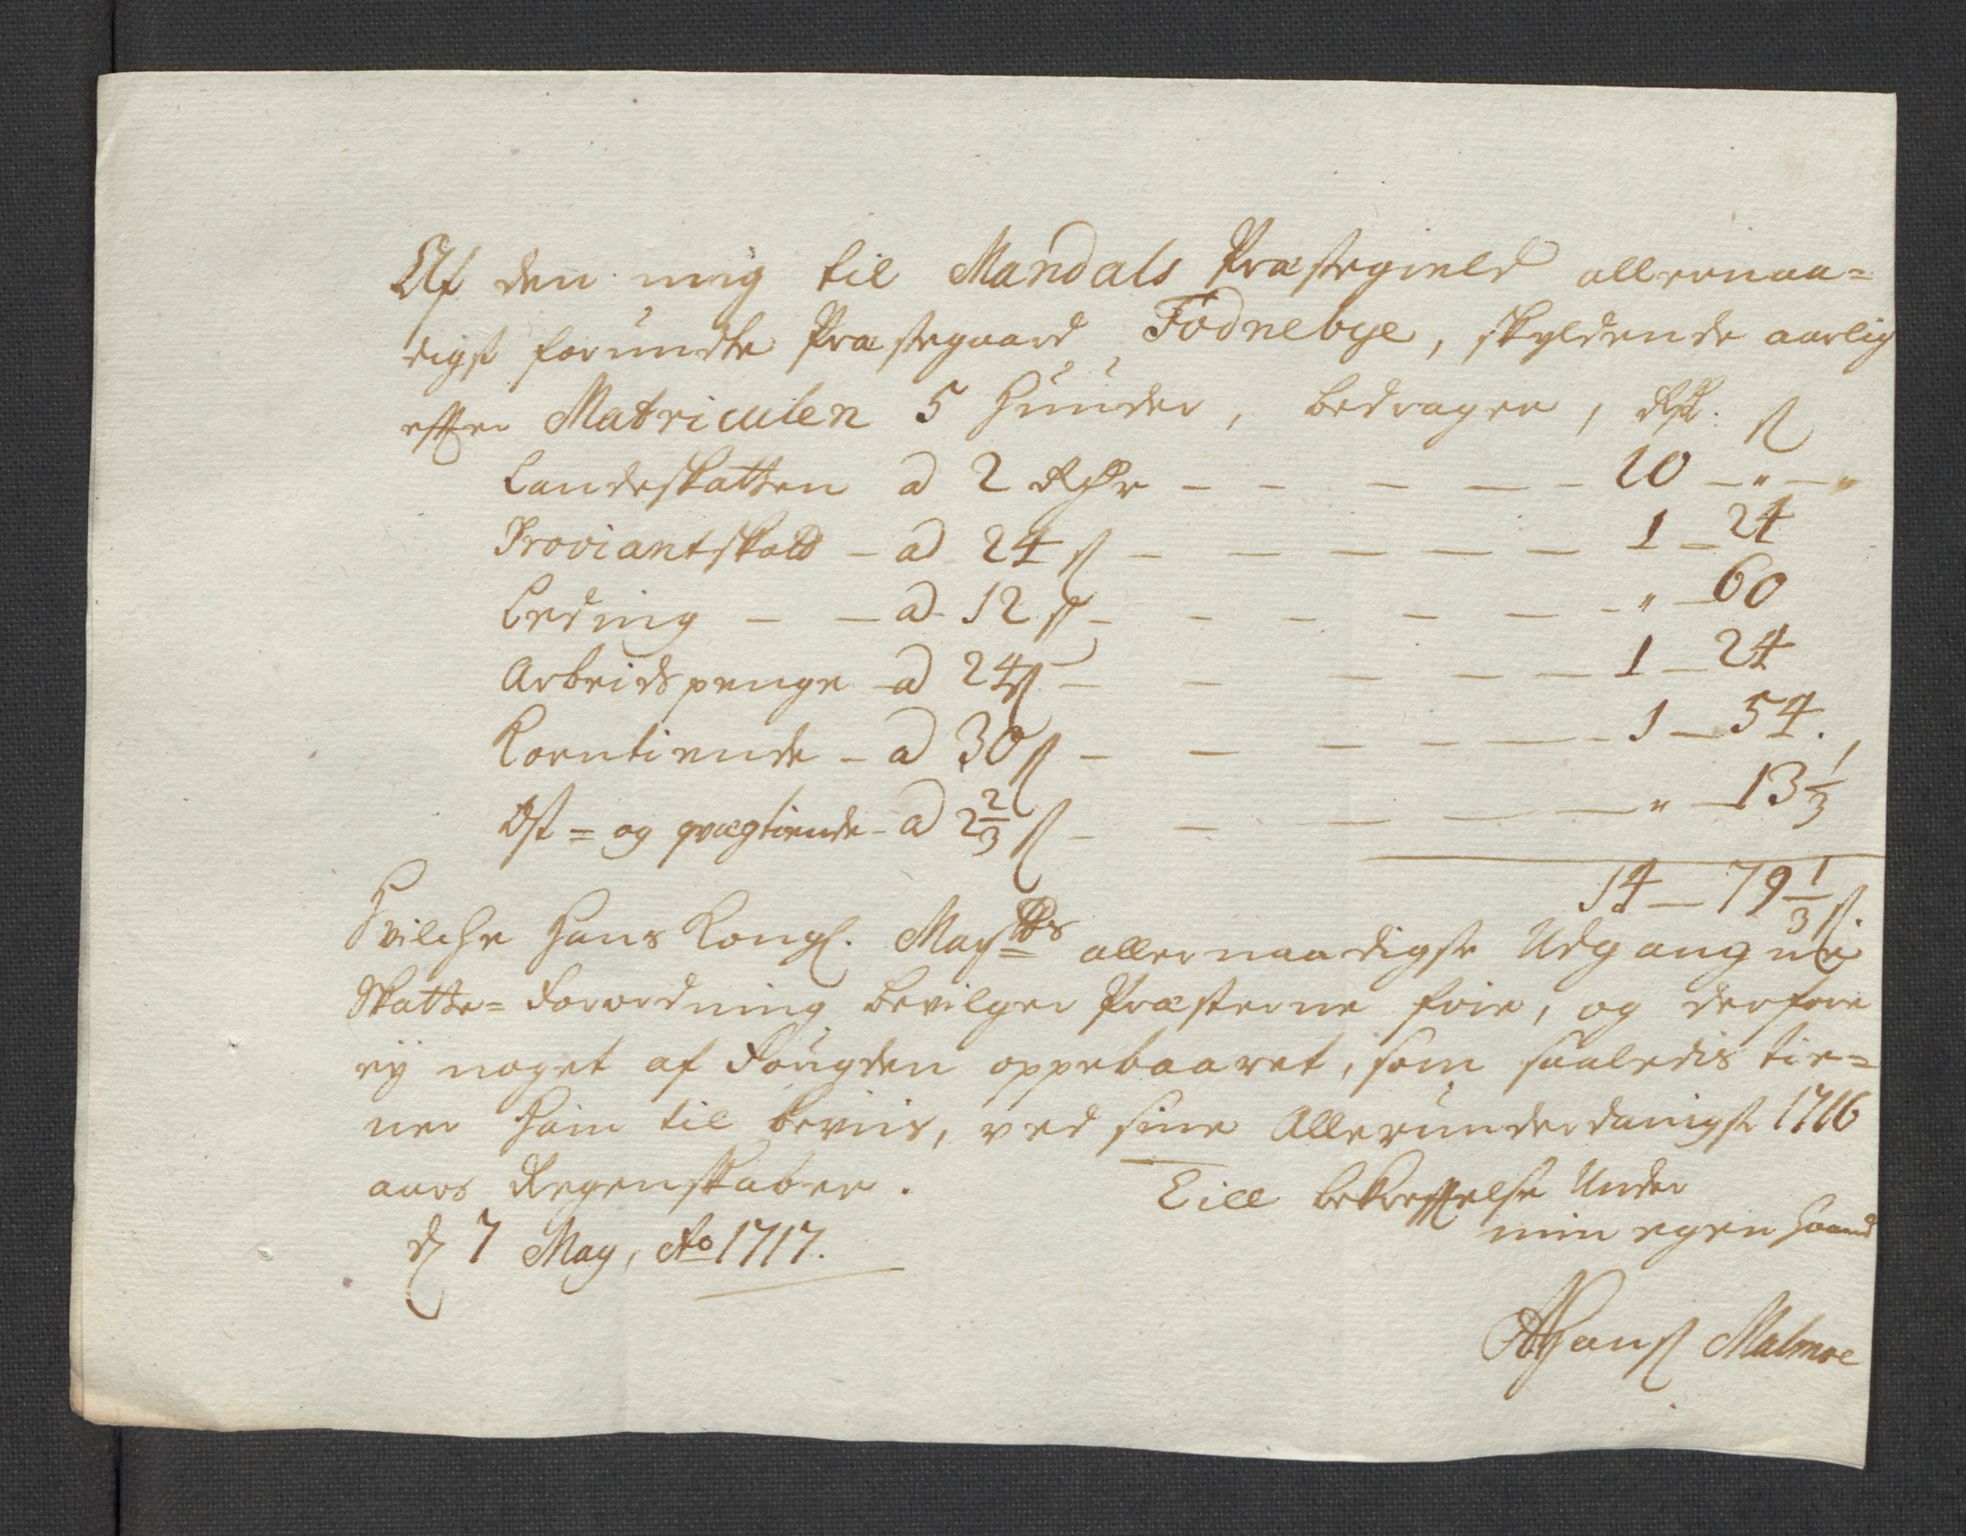 Af den mig til Mandals Præstegield allernaa=
digst forundte Præstegaard Fodnebye, skyldende aarlig
effter Matriculen 5 Hunder, bedrager, Rdr. ß
Landskatten a 2 Rdr — — — — — 10 — " — "
Proviantskatt — a 24 ß — — — — — 1 — 24
Leding — — a 12 ß — — — — — " — 60
Arbeidspenge a 24 ß — — — — — 1 — 24
Korntiende — a 30 ß — — — — — 1 — 54.
Ost = og qvægtiende — a 2 2/3 ß — — — — — " — 13 1/3
14 — 79 1/3 ß.
Hvilche Hans Kongl. Maytts allernaadigste Udgangne
Skatte = Forordning bevilger Præsterne frie, og derfore
ey noget af Fougden oppebaaret, som saaledis tie=
ner ham til beviis, ved sine Allerunderdanigste 1716
aars Regenskaber. Till bekreffelse Under
min egen haand
d 7 May, Ao 1717.
Hans Malmoe